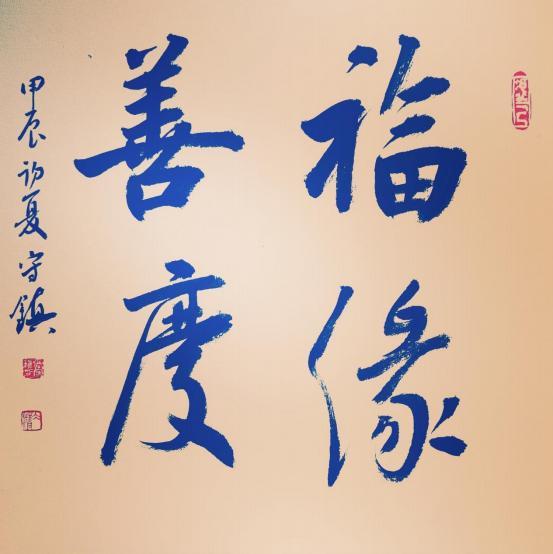 福緣
善慶
甲辰初夏守鎮